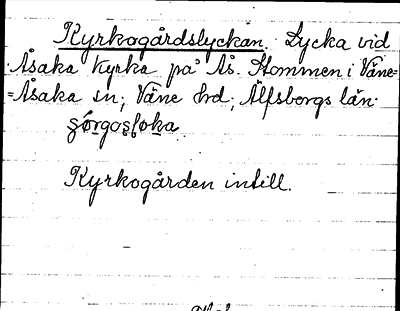 Kyrkogårdslyckan. Lycka vid
Åsaka kyrka på Ås. Hommen i Väne-
=Åsaka sn; Väne hrd; Älfsborgs län.
Kyrkogården intill.